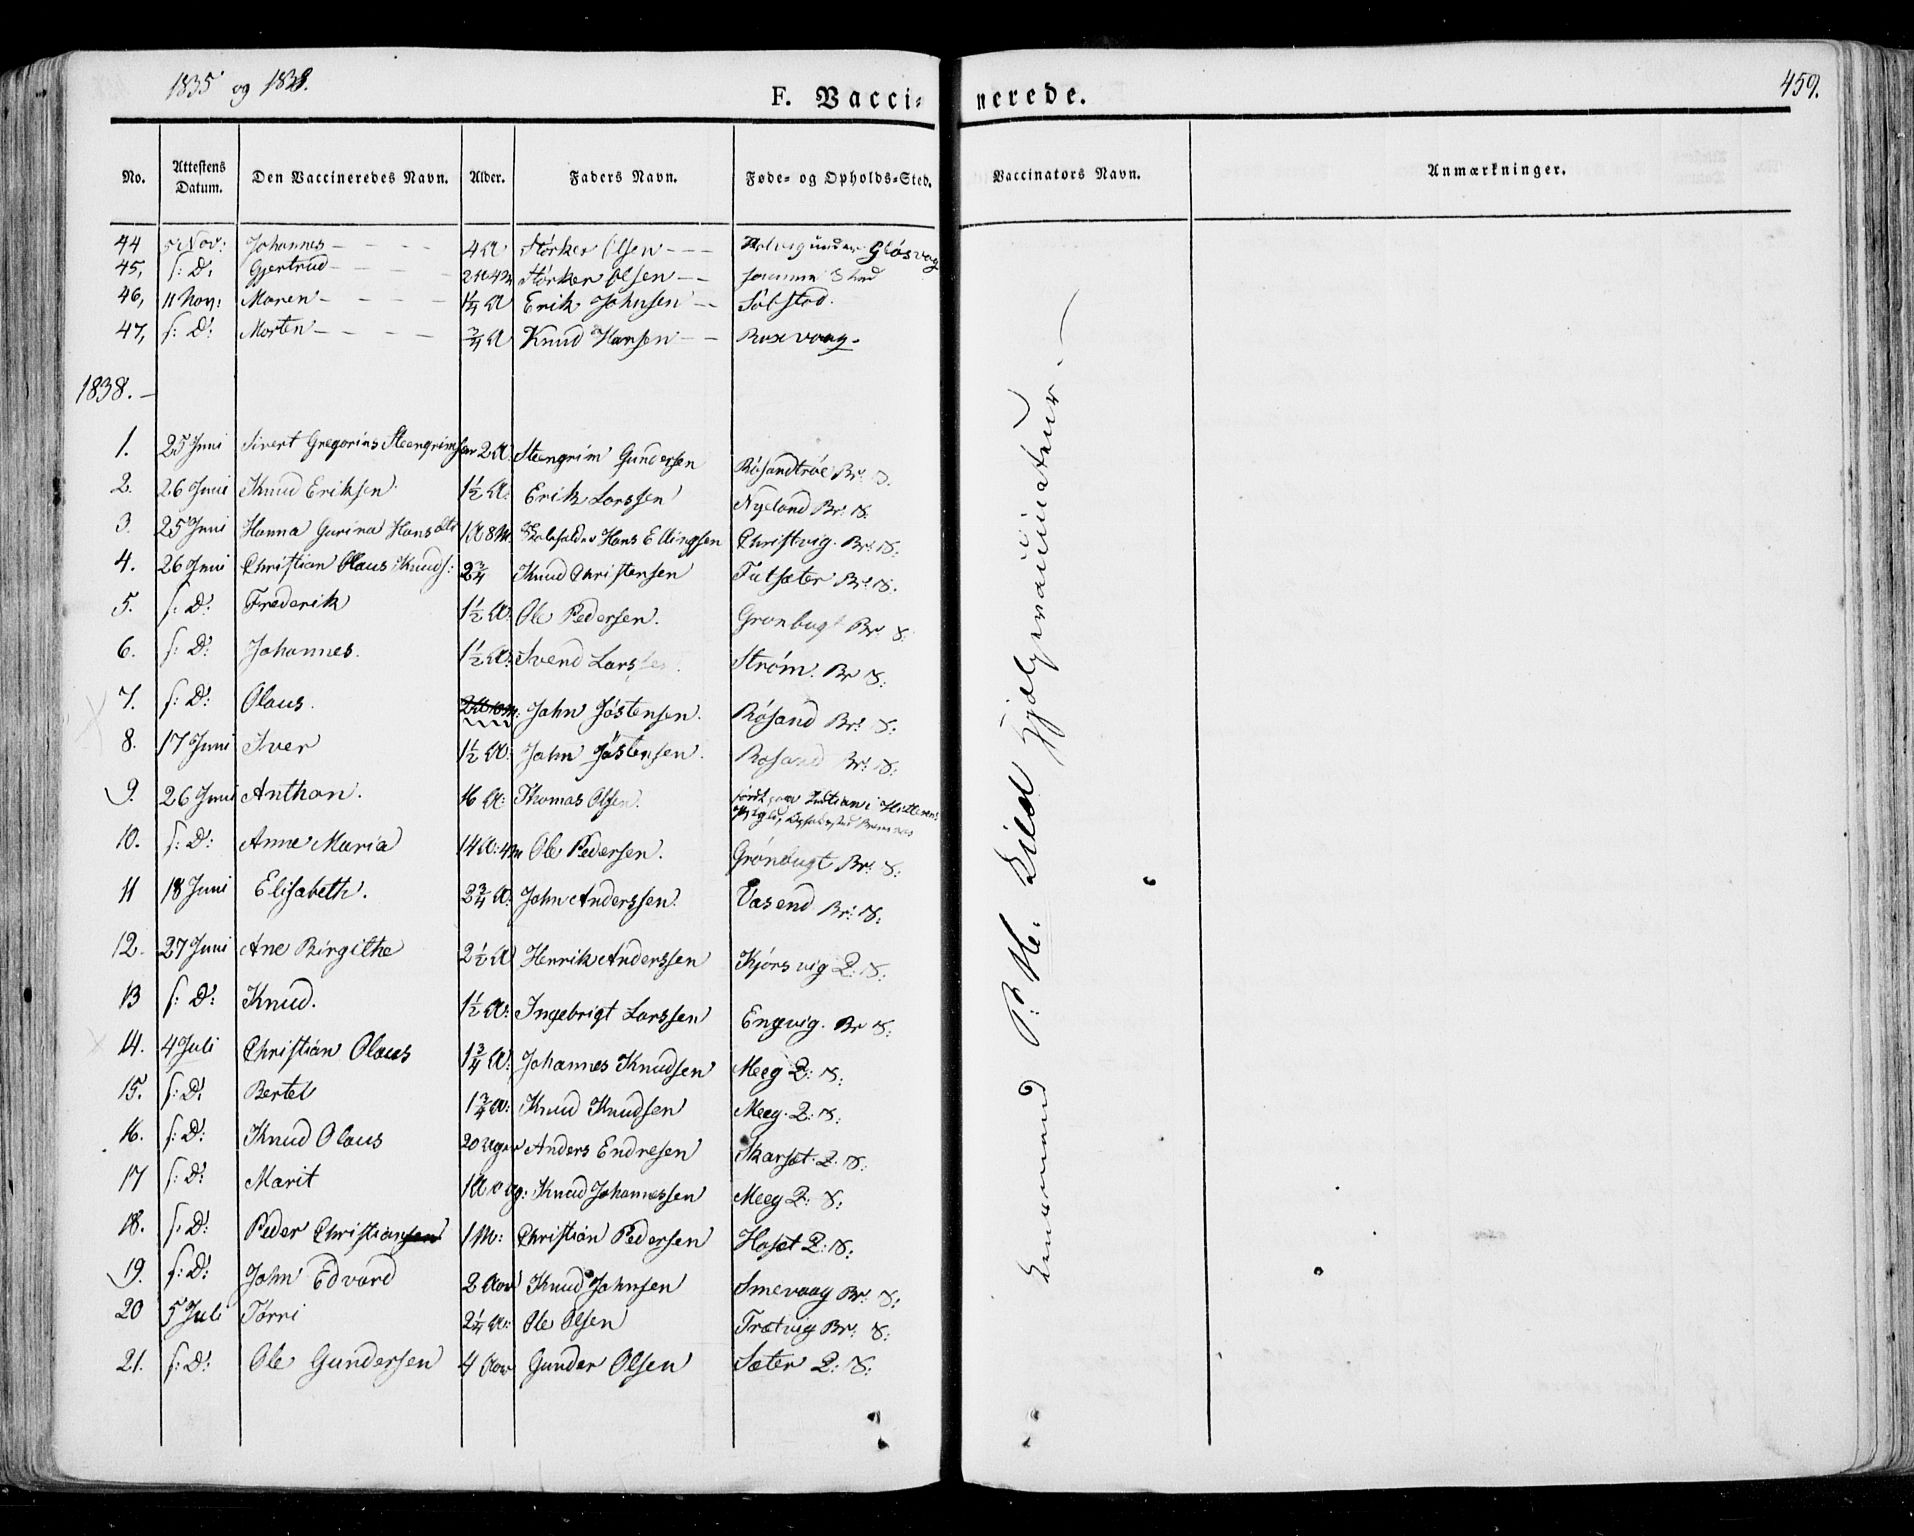 1835 og 1838.
F. Vacci- nerede.
459.
No. Attestens Datum. Den Vaccineredes Navn. Alder. Faders Navn. Føde- og Opholds-Sted. Vaccinators Navn. Anmærkninger.
44, 5 Nov: Johannes - - - - 4 A Størker Olsen - - - under Gløsvog
45, s: D: Gjertrud - - - - 2 A 4 M Størker Olsen - - samme Sted
46, 11 Nov: Maren - - - - 1¼ A Erik Johnsen - - Sølstad.
47, s: D: Morten - - - - ¾ A Knud Hansen - - Roxvaag.
1838. -
1. 25 Juni Sivert Gregorius Steengrimsen 2 A: Steengrim Gundersen Røsandtrøe Br: S.
2. 26 Juni Knud Eriksen 1½ A: Erik Larssen Nyeland Br: S.
3. 25 Juni Hanna Gurina Hans 1 A 8 M. Hans Ellingsen Christvig. Br: S:
4. 26 Juni Christian Olaus Knuds: 2¾ Knud Christensen Futsæter Br: S.
5. s: D: Frederik 1½ A: Ole Pedersen. Grønbugt Br: S:
6. s: D: Johannes. 1½ A: Svend Larssen. Strøm. Br S:
7. s: D: Olaus. John Jøstensen. Røsand Br: S:
8. 17 Juni Iver 1½ A: John Jøstensen. Røsand Br: S:
9. 26 Juni Anthon. 16 A: Thomas Olsen.
10. s: D: Anne Maria 14 A: 4 M Ole Pedersen. Grønbugt Br: S:
11 18 Juni Elisabeth. 2¾ A: John Anderssen. Vasend Br: S:
12. 27 Juni Ane Birgithe 2½ A Henrik Anderssen Kjørsvig Q: S:
13 s: D: Knud. 1½ A: Ingebrigt Larssen Engvig. Br S:
14. 4 Juli Christian Olaus 1¾ A: Johannes Knudsen Meeg Q: S:
15. s: D: Bertel 1¾ A: Knud Knudsen Meeg. Q: S:
16. s: D: Knud Olaus 20 Uger Anders Endresen Skarset. Q. S:
17 s: D: Marit Knud Johannessen Meeg Q: S:
18. s: D: Peder Christiansen 1 M: Christian Pedersen Hoset Q: S:
19. s: D: John Edvard 2 Aar Knud Johnsen Smevaag Br: S:
20 5 Juli Torri 2¼ A: Ole Olsen Trætvig Br: S:
21. s: D: Ole Gundersen 4 Aar Gunder Olsen Sæter Q: S:
P: H. Lild Hjælpevaccinateur. -